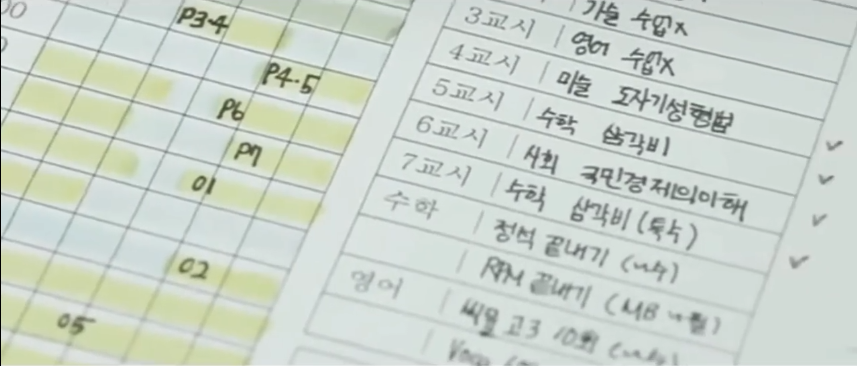 P3·4
P4·5
P6
P7
01
02
05
기술 수업x
3교시 영어 수업x
4교시 미술 도자기성형법
5교시 수학 삼각비
6교시 사회 국민경제의이해
7교시 수학 삼각비(특수)
수학 정석 끝내기
RPM 끝내기
영어 씨뮬 고3 10회
Voca